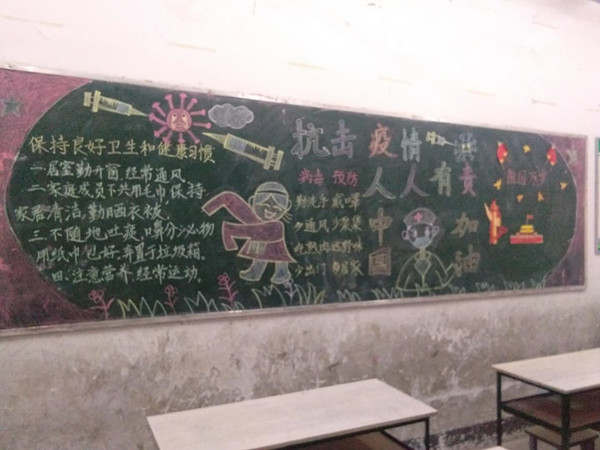 保持良好卫生和健康习惯
一.居室勤开窗,经常通风
二.家庭成员不共用毛巾,保持
家居清洁,勤晒衣被.
三.不随地吐痰,口鼻分泌物
用纸巾包好,弃置于垃圾箱.
四.注意营养,经常运动
抗击疫情
病毒 预防
勤洗手 戴口罩
少通风 少聚集
吃熟肉 拒野味
少出门 多居家
人人有责
中国
加油